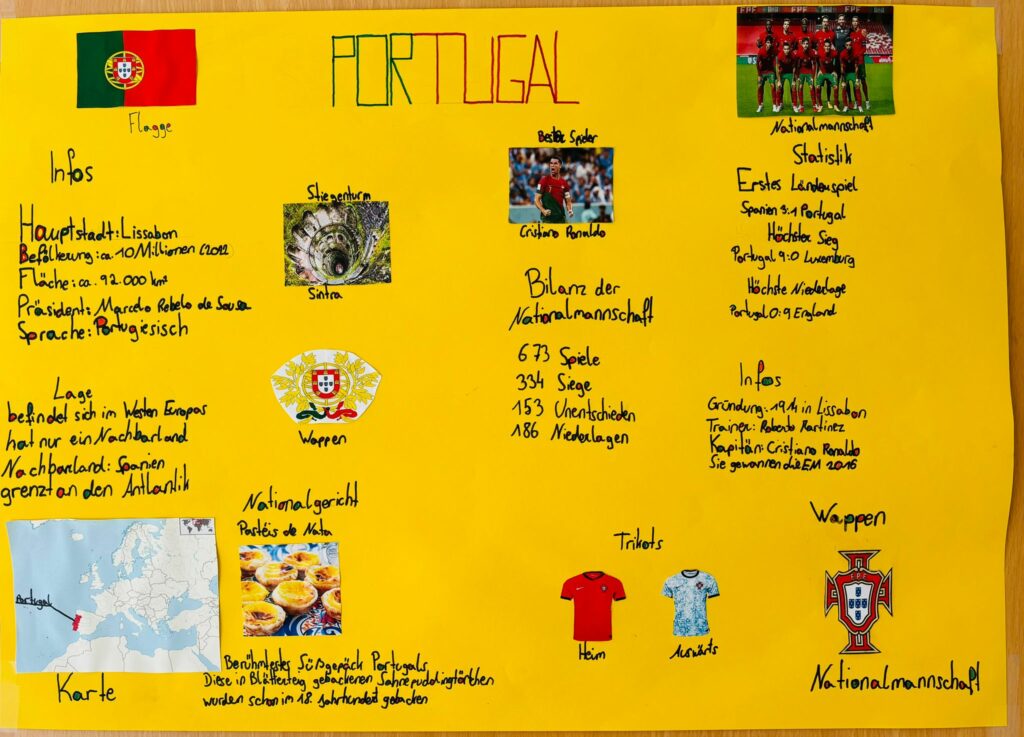 PORTUGAL
Flagge
Infos
Hauptstadt: Lissabon
Befölkerung: ca. 10 Millionen (2012
Fläche: ca. 92.000 km²
Präsident: Marcelo Rebelo de Sousa
Sprache: Portugiesisch
Lage
befindet sich im Westen Europas
hat nur ein Nachbarland
Nachbarland: Spanien
grenzt an den Antlantik
Portugal
Karte
Stiegenturm
Sintra
Wappen
Nationalgericht
Pastéis de Nata
Berühmtestes Süßgepäck Portugals
Diese in Blätterteig gebackenen Sahnepuddingtörtchen
wurden schon im 18. Jahrhundert gebacken
Bester Spieler
Cristiano Ronaldo
Bilanz der
Nationalmannschaft
673 Spiele
334 Siege
153 Unentschieden
186 Niederlagen
Trikots
Heim
Auswärts
FPF
Nationalmannschaft
Statistik
Erstes Länderspiel
Spanien 3:1 Portugal
Höchster Sieg
Portugal 9:0 Luxemburg
Höchste Niederlage
Portugal 0:9 England
Infos
Gründung: 1914 in Lissabon
Trainer: Roberto Martinez
Kapitän: Cristiano Ronaldo
Sie gewannen die EM 2016
Wappen
FPF
Nationalmannschaft